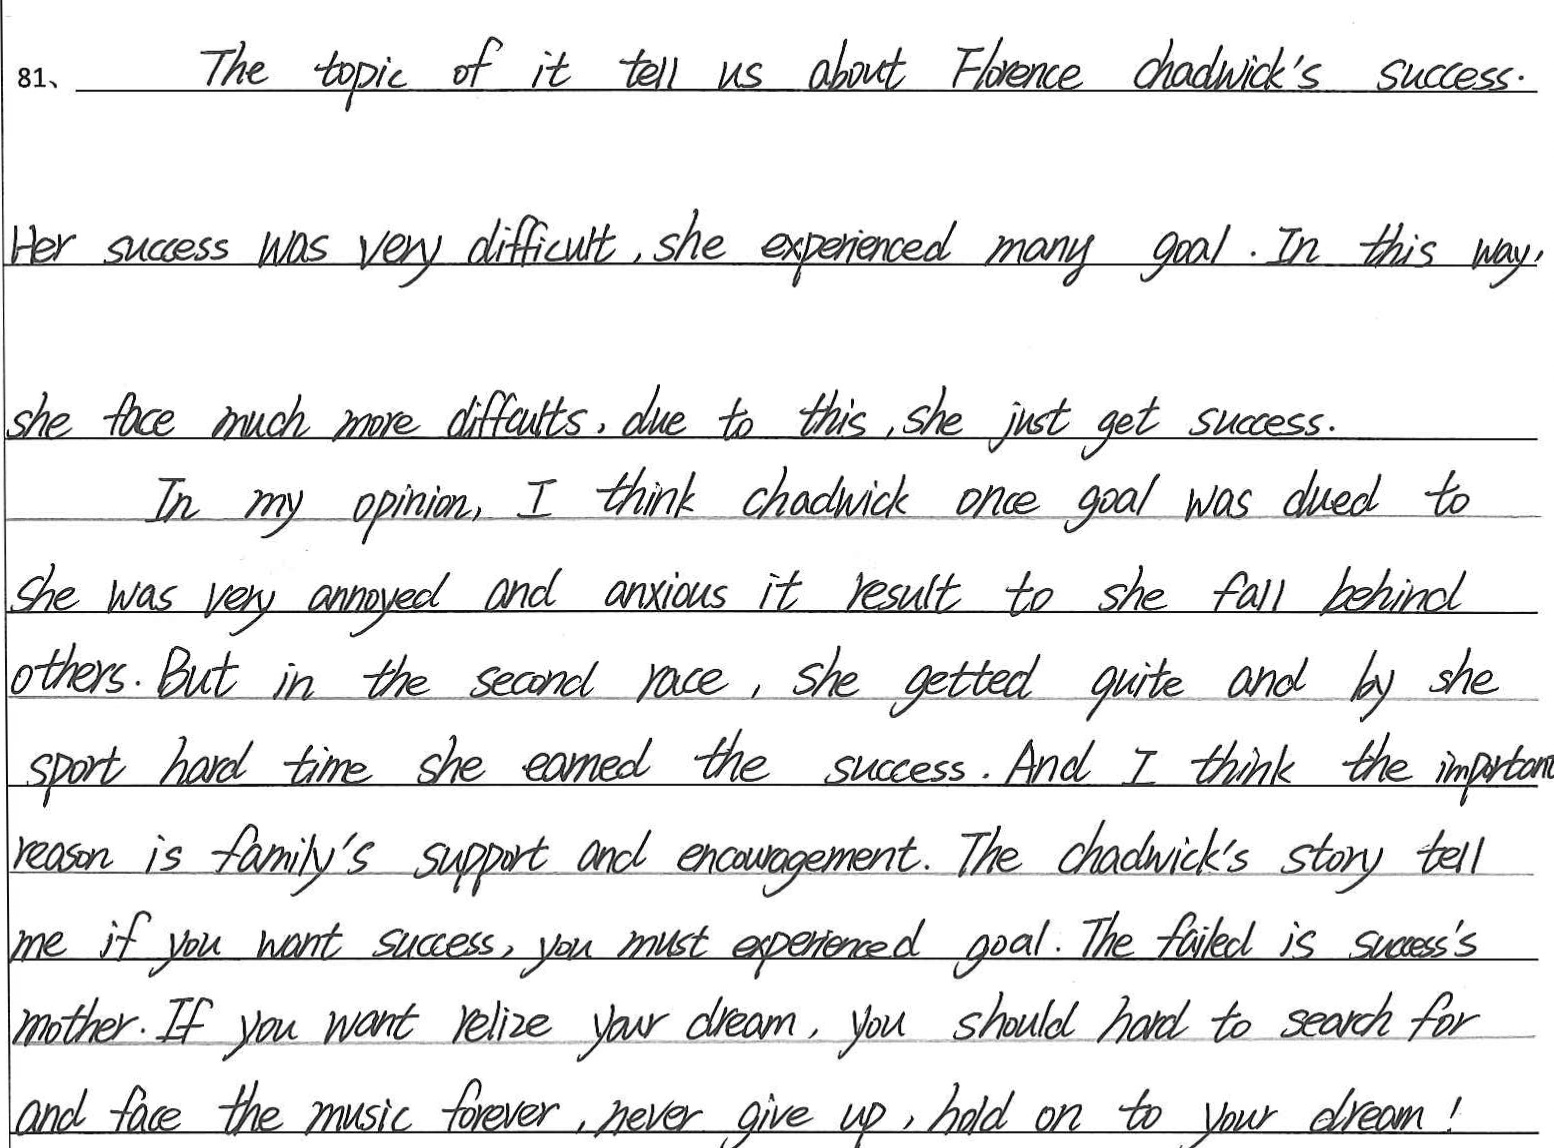 81、 The topic of it tell us about Florence chadwick's success.
Her success was very difficult, she experienced many goal. In this way,
she face much more diffcults, due to this, she just get success.
In my opinion, I think chadwick once goal was dued to
she was very annoyed and anxious it result to she fall behind
others. But in the second race, she getted quite and by she
sport hard time she earned the success. And I think the important
reason is family's support and encouragement. The chadwick's story tell
me if you want success, you must experienced goal. The failed is success's
mother. If you want relize your dream, you should hard to search for
and face the music forever, never give up, hold on to your dream!